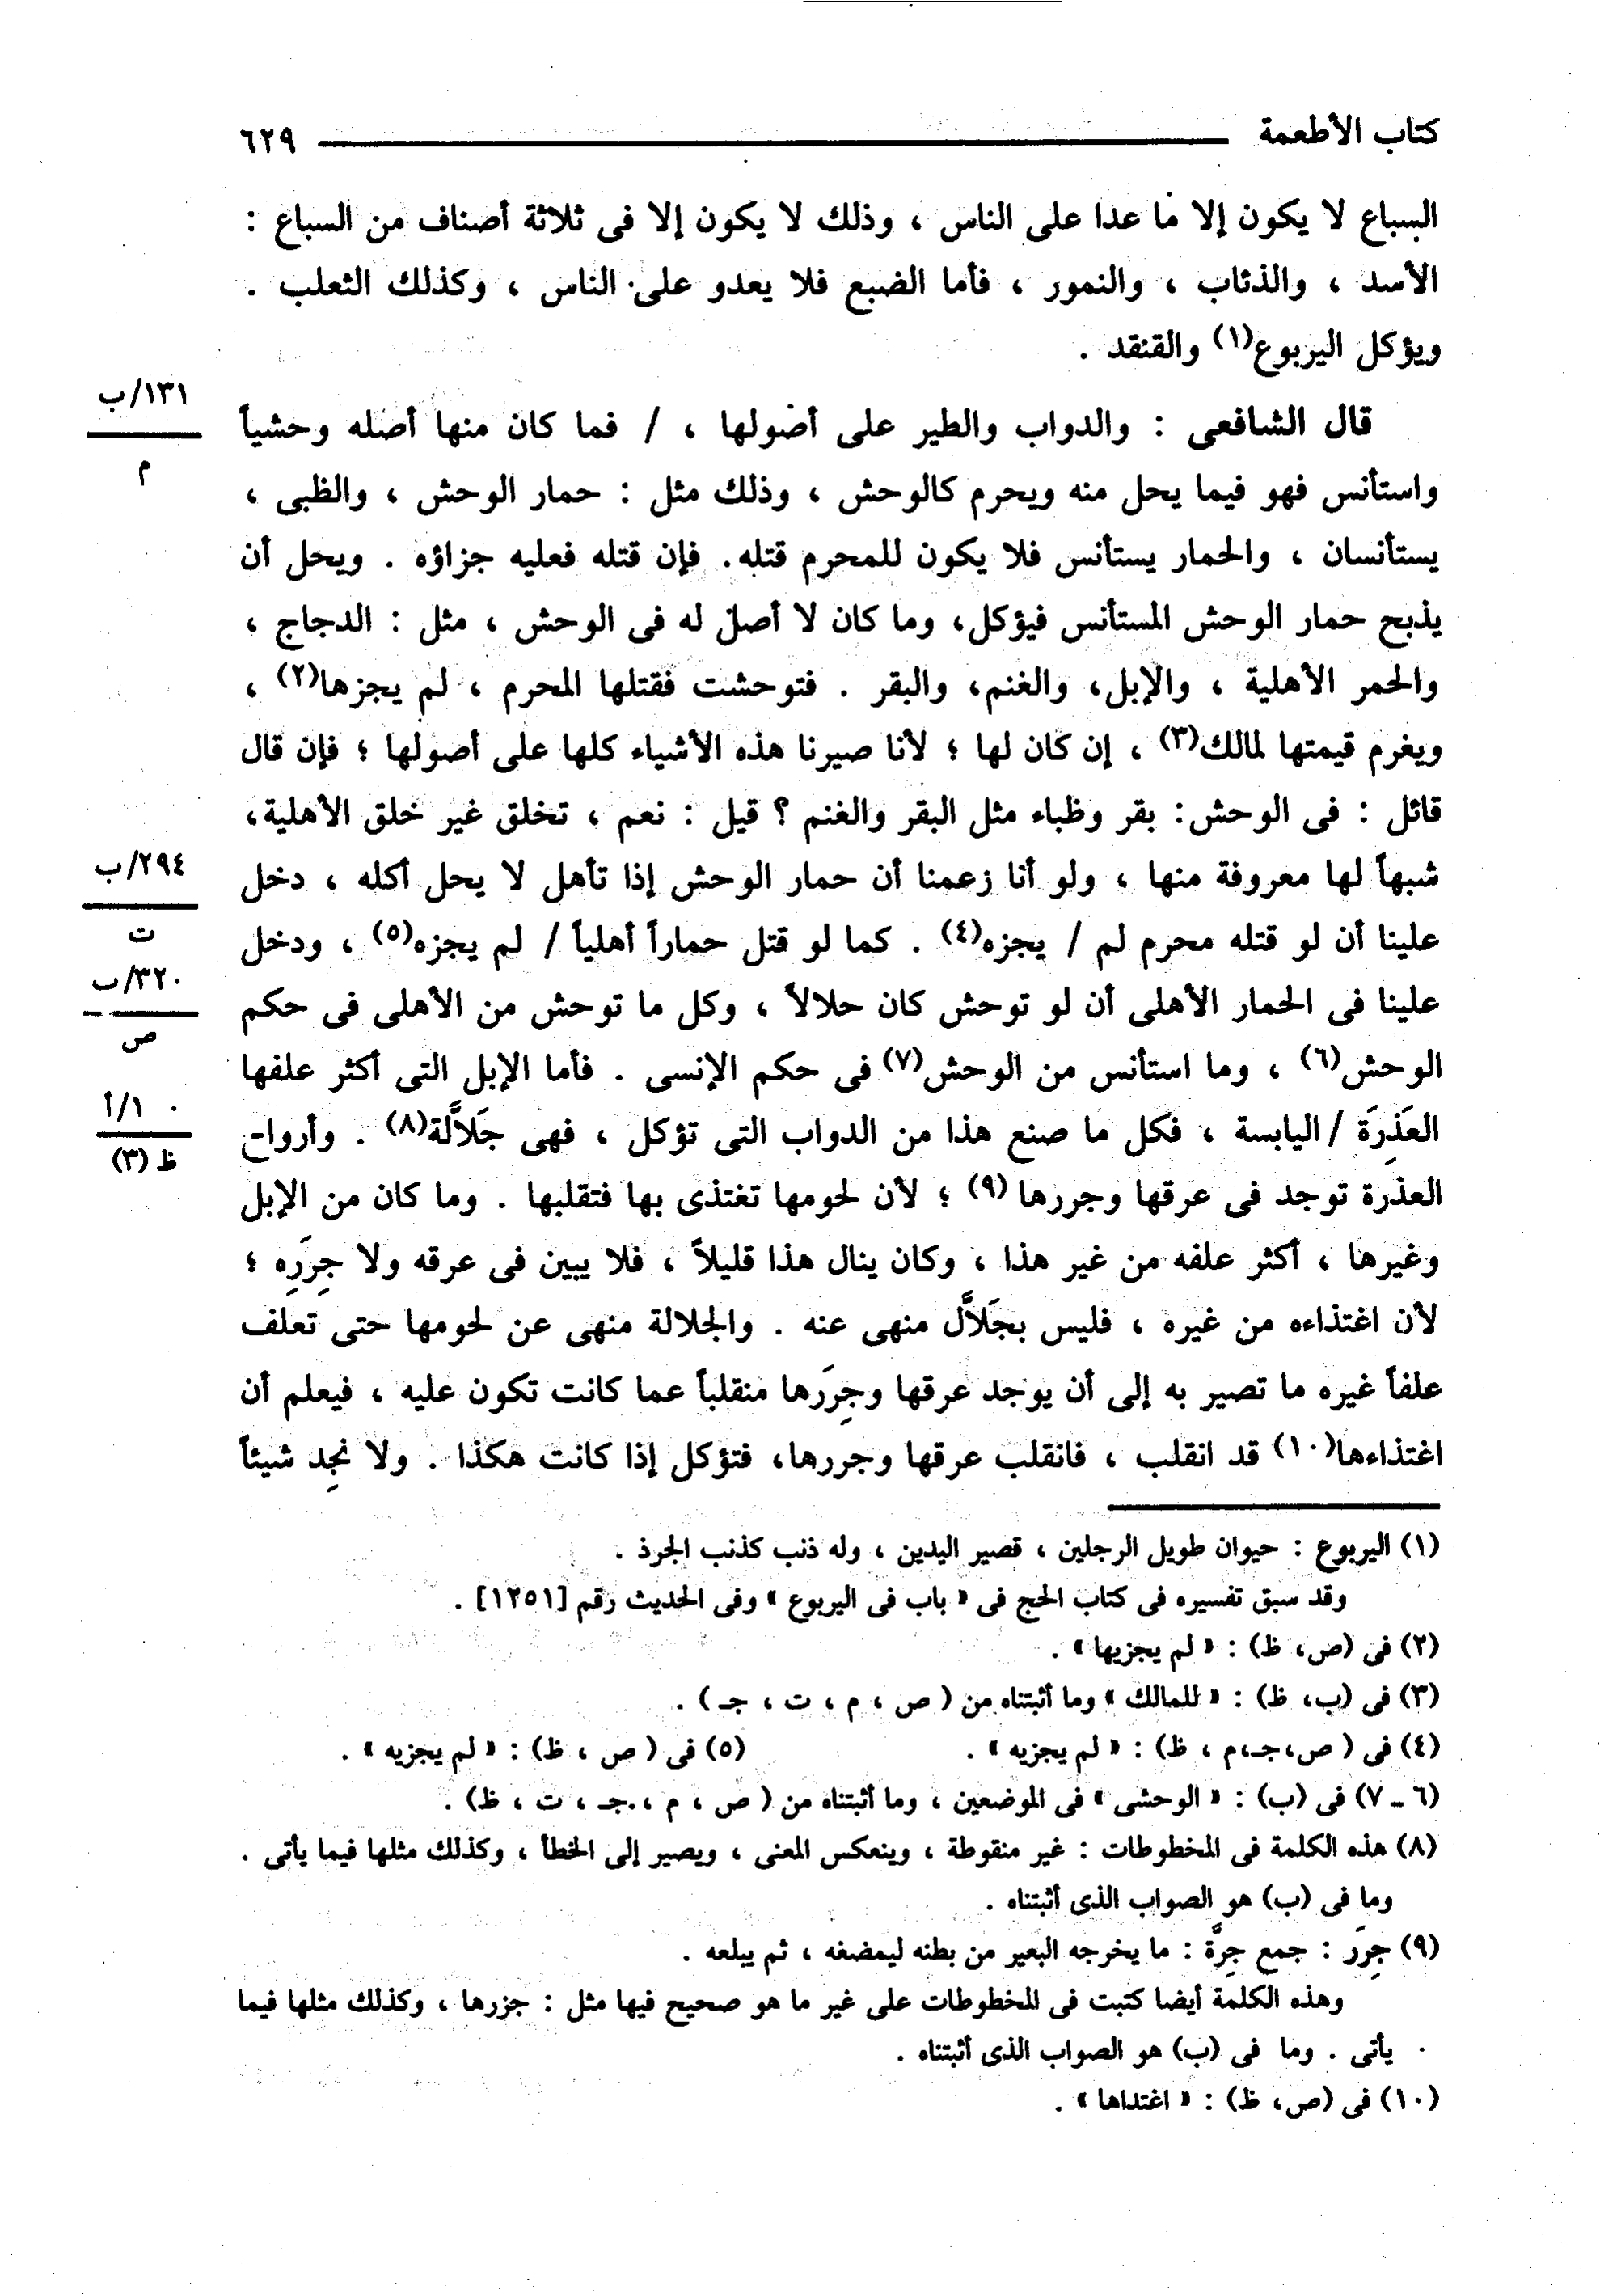 كتاب الأطعمة ٦٢٩
السباع لا يكون إلا ما عدا على الناس ، وذلك لا يكون إلا فى ثلاثة أصناف من السباع :
الأسد ، والذئاب ، والنمور ، فأما الضبع فلا يعدو على الناس ، وكذلك الثعلب .
ويؤكل اليربوع(١) والقنقد .
١٣١/ب
م
قال الشافعى : والدواب والطير على أصولها ، / فما كان منها أصله وحشياً
واستأنس فهو فيما يحل منه ويحرم كالوحش ، وذلك مثل : حمار الوحش ، والظبى ،
يستأنسان ، والحمار يستأنس فلا يكون للمحرم قتله. فإن قتله فعليه جزاؤه . ويحل أن
يذبح حمار الوحش المستأنس فيؤكل، وما كان لا أصل له فى الوحش ، مثل : الدجاج ،
والحمر الأهلية ، والإبل، والغنم، والبقر . فتوحشت فقتلها المحرم ، لم يجزها(٢) ،
ويغرم قيمتها لمالك(٣) ، إن كان لها ؛ لأنا صيرنا هذه الأشياء كلها على أصولها ؛ فإن قال
قائل : فى الوحش: بقر وظباء مثل البقر والغنم ؟ قيل : نعم ، تخلق غير خلق الأهلية،
شبهاً لها معروفة منها ، ولو أنا زعمنا أن حمار الوحش إذا تأهل لا يحل أكله ، دخل
٢٩٤/ب
ت
علينا أن لو قتله محرم لم / يجزه(٤) . كما لو قتل حماراً أهلياً / لم يجزه(٥) ، ودخل
٣٢٠/ب
ص
علينا فى الحمار الأهلى أن لو توحش كان حلالاً ، وكل ما توحش من الأهلى فى حكم
الوحش(٦) ، وما استأنس من الوحش(٧) فى حكم الإنسى . فأما الإبل التى أكثر علفها
١٠/أ
ظ (٣)
العَذِرَة /اليابسة ، فكل ما صنع هذا من الدواب التى تؤكل ، فهى جَلاَّلة(٨) . وأرواح
العذرة توجد فى عرقها وجررها (٩) ؛ لأن لحومها تغتذى بها فتقلبها . وما كان من الإبل
وغيرها ، أكثر علفه من غير هذا ، وكان ينال هذا قليلاً ، فلا يبين فى عرقه ولا جِرَرِه ؛
لأن اغتذاءه من غيره ، فليس بجَلاَّل منهى عنه . والجلالة منهى عن لحومها حتى تعلف
علفاً غيره ما تصير به إلى أن يوجد عرقها وجِرَرها منقلباً عما كانت تكون عليه ، فيعلم أن
اغتذاءها(١٠) قد انقلب ، فانقلب عرقها وجررها، فتؤكل إذا كانت هكذا . ولا نجِد شيئاً
(١) اليربوع : حيوان طويل الرجلين ، قصير اليدين ، وله ذنب كذنب الجرذ .
وقد سبق تفسيره فى كتاب الحج فى « باب فى اليربوع » وفى الحديث رقم [١٢٥١] .
(٢) فى (ص، ظ) : « لم يجزيها » .
(٣) فى (ب، ظ) : « للمالك » وما أثبتناه من ( ص ، م ، ت ، جـ ) .
(٤) فى ( ص،جـ،م ، ظ) : « لم يجزيه » . (٥) فى ( ص ، ظ) : « لم يجزيه » .
(٦ ـ ٧) فى (ب) : « الوحشى » فى الموضعين ، وما أثبتناه من ( ص ، م ، جـ ، ت ، ظ) .
(٨) هذه الكلمة فى المخطوطات : غير منقوطة ، وينعكس المعنى ، ويصير إلى الخطأ ، وكذلك مثلها فيما يأتى .
وما فى (ب) هو الصواب الذى أثبتناه .
(٩) جِرَر : جمع جِرَّة : ما يخرجه البعير من بطنه ليمضغه ، ثم يبلعه .
وهذه الكلمة أيضا كتبت فى المخطوطات على غير ما هو صحيح فيها مثل : جزرها ، وكذلك مثلها فيما
يأتى . وما فى (ب) هو الصواب الذى أثبتناه .
(١٠) فى (ص، ظ) : « اغتداها » .